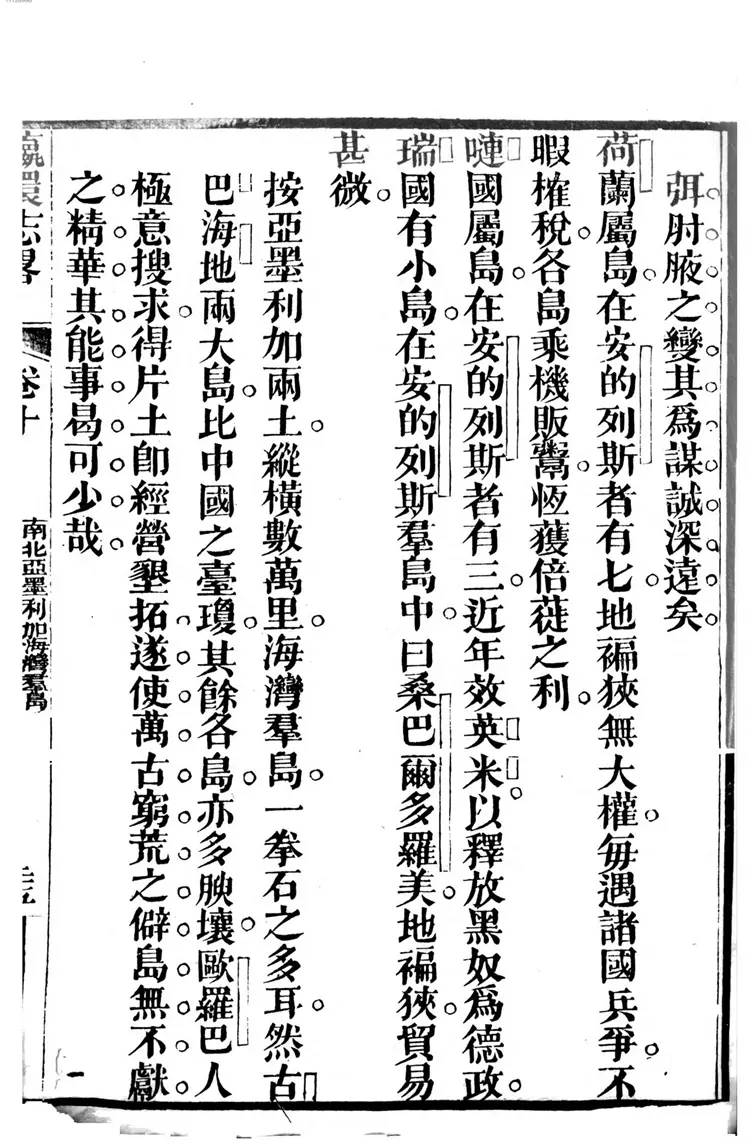 弭肘腋之變其爲謀誠深遠矣
荷蘭屬島在安的列斯者有七地褊狹無大權每遇諸國兵爭不
暇榷稅各島乘機販鬻恆獲倍蓰之利
嗹國屬島在安的列斯者有三近年效英米以釋放黑奴爲德政
瑞國有小島在安的列斯羣島中曰桑巴爾多羅美地褊狹貿易
甚微
按亞墨利加兩土縱橫數萬里海灣羣島一拳石之多耳然古
巴海地兩大島比中國之臺瓊其餘各島亦多腴壤歐羅巴人
極意搜求得片土卽經營墾拓遂使萬古窮荒之僻島無不獻
之精華其能事曷可少哉
瀛寰志畧
卷十
南北亞墨利加海灣羣島